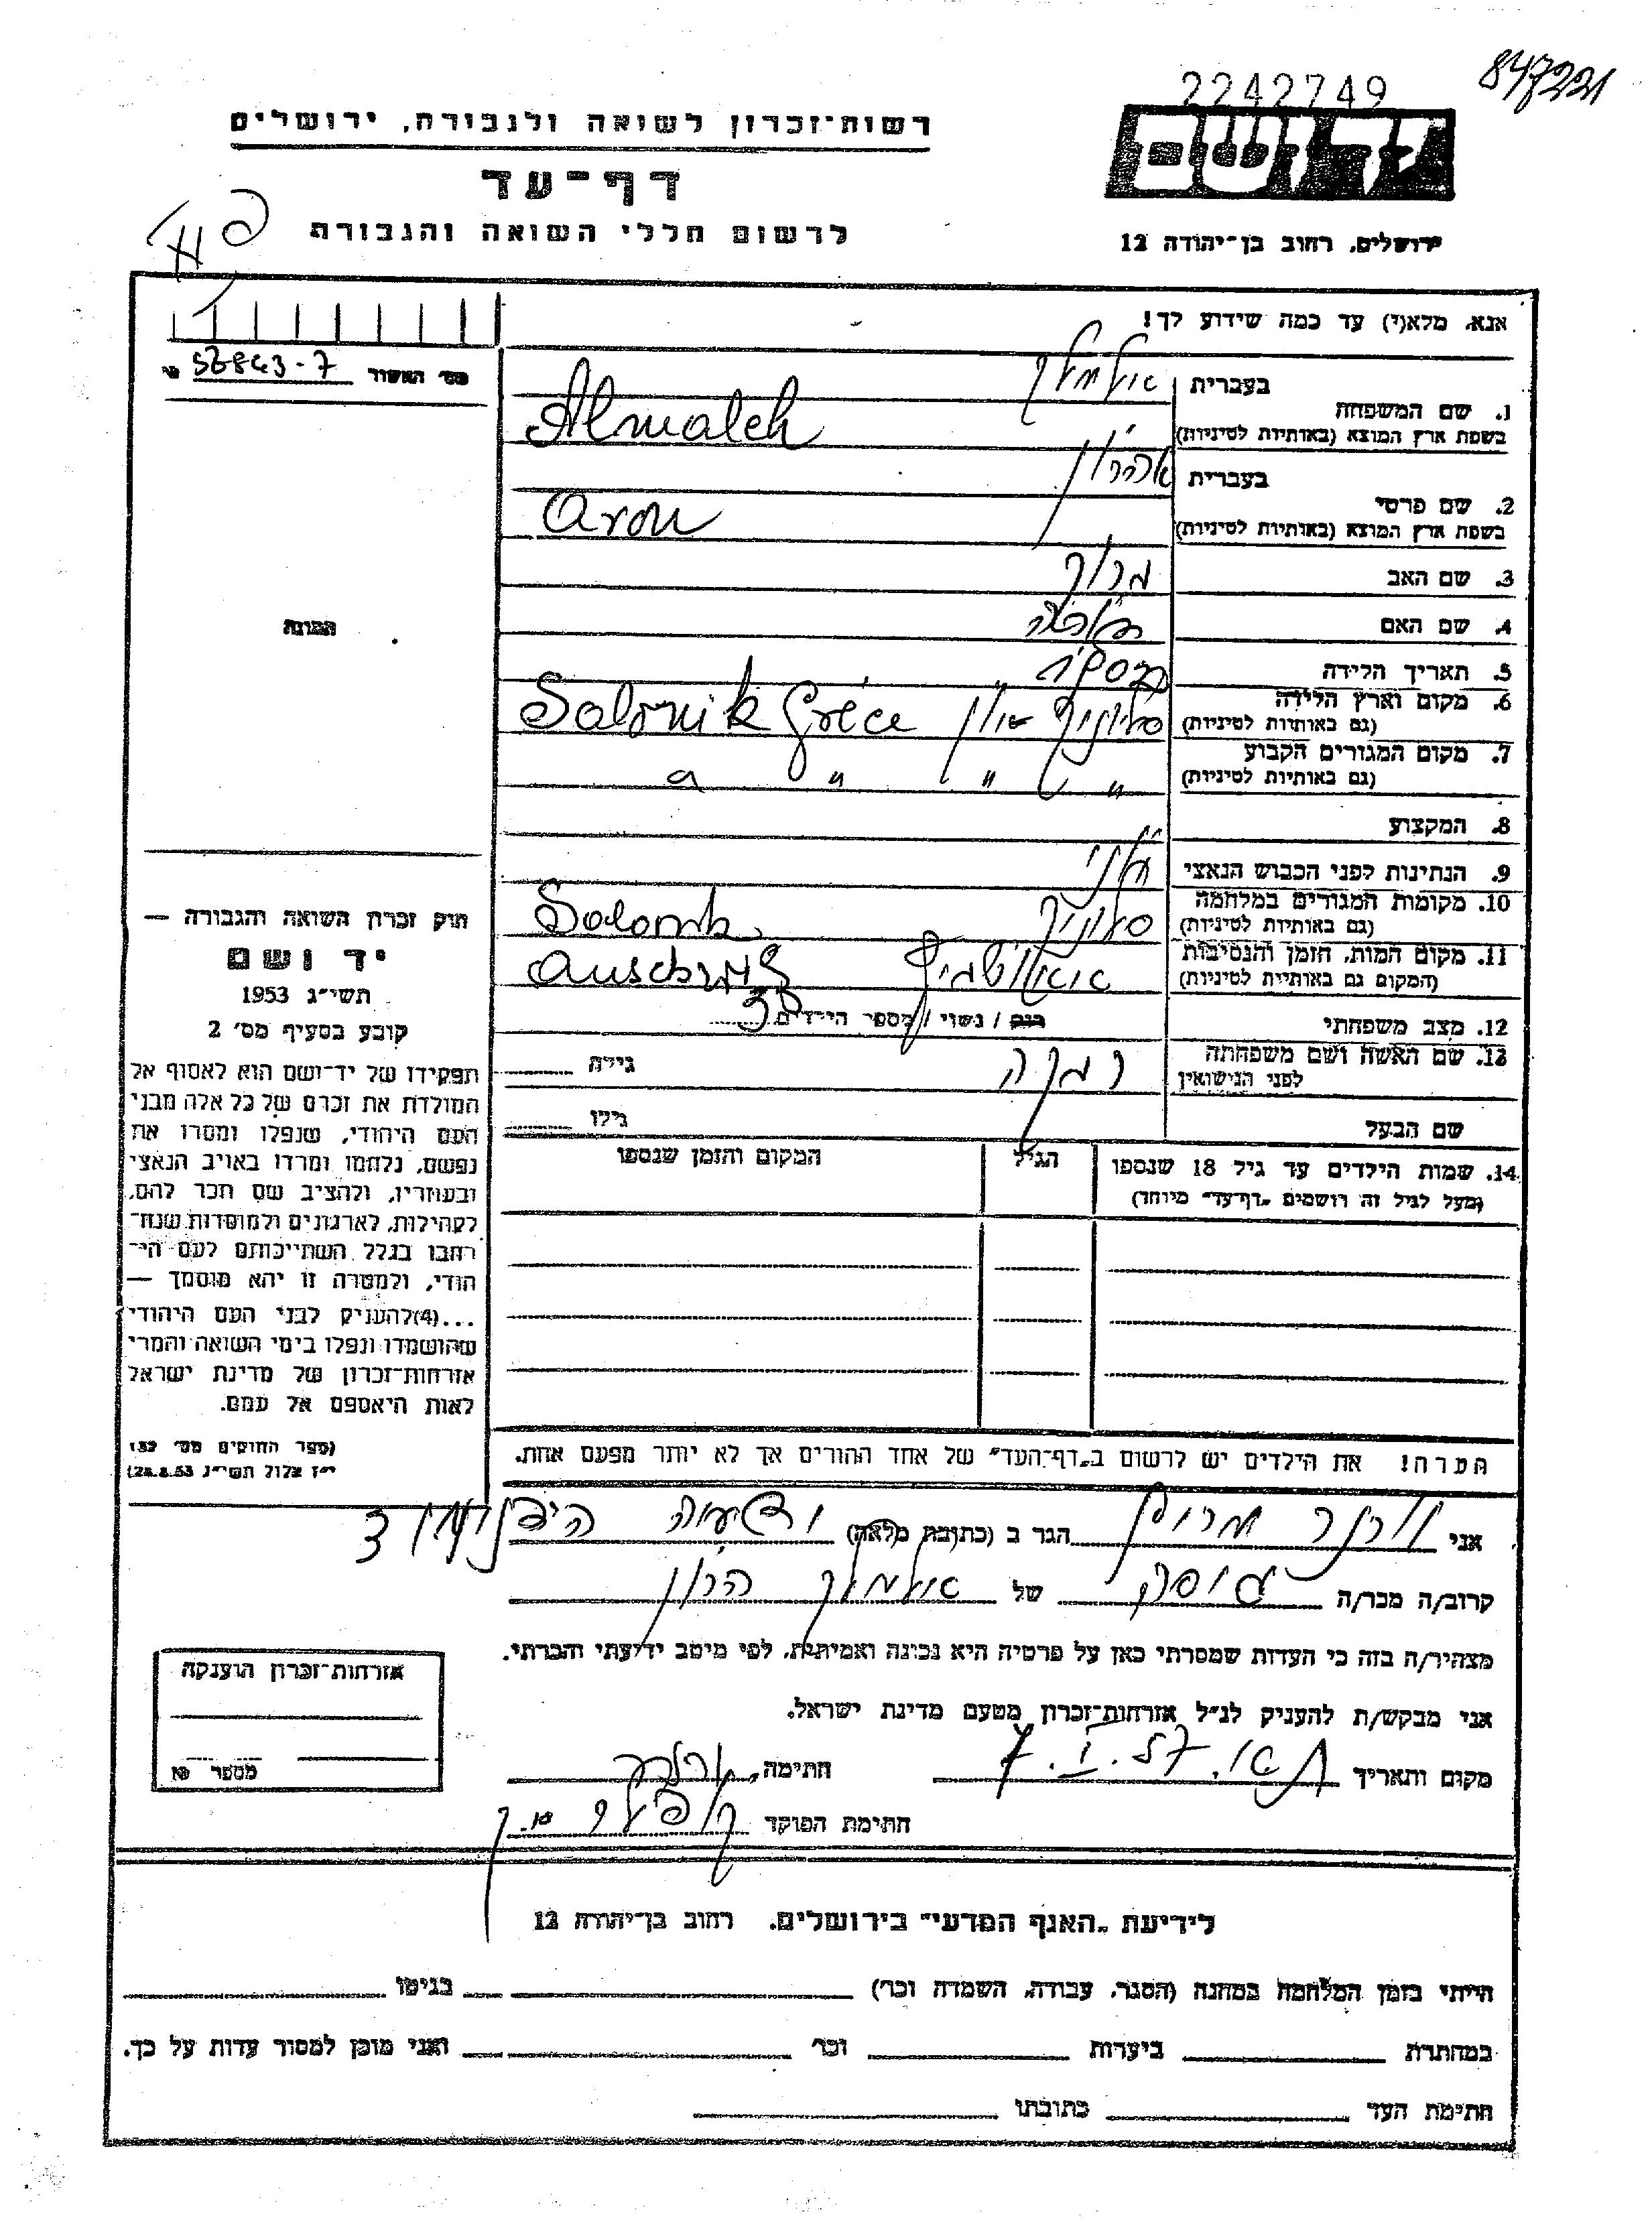 2242749
847221
רשות־זכרון לשואה ולגבורה, ירושלים
יד ושם
דף־עד
לרשום חללי השואה והגבורה
ירושלים, רחוב בן־יהודה 12
אנא, מלא(י) עד כמה שידוע לך!
מס׳ האשור
בעברית
1. שם המשפחה
בשפת ארץ המוצא (באותיות לטיניות) Almaleh
בעברית אהרון
2. שם פרטי
בשפת ארץ המוצא (באותיות לטיניות) Aron
3. שם האב
4. שם האם
5. תאריך הלידה
6. מקום וארץ הלידה
(גם באותיות לטיניות) סלוניק יון Salonik Gréce
7. מקום המגורים הקבוע
(גם באותיות לטיניות) " " " "
8. המקצוע
9. הנתינות לפני הכבוש הנאצי יוני
10. מקומות המגורים במלחמה
(גם באותיות לטיניות) סלוניק Salonik
11. מקום המות, הזמן והנסיבות
(המקום גם באותיות לטיניות)
12. מצב משפחתי רווק / נשוי / מספר הילדים
13. שם האשה ושם משפחתה
לפני הנישואין גילה
שם הבעל גילו
14. שמות הילדים עד גיל 18 שנספו הגיל המקום והזמן שנספו
(מעל לגיל זה רושמים „דף־עד״ מיוחד)
הערה! את הילדים יש לרשום ב„דף־העד״ של אחד ההורים אך לא יותר מפעם אחת.
התמונה
חוק זכרון השואה והגבורה —
יד ושם
תשי״ג 1953
קובע בסעיף מס׳ 2
תפקידו של יד־ושם הוא לאסוף אל
המולדת את זכרם של כל אלה מבני
העם היהודי, שנפלו ומסרו את
נפשם, נלחמו ומרדו באויב הנאצי
ובעוזריו, ולהציב שם וזכר להם,
לקהילות, לארגונים ולמוסדות שנח־
רבו בגלל השתייכותם לעם הי־
הודי, ולמטרה זו יהא מוסמך —
...(4) להעניק לבני העם היהודי
שהושמדו ונפלו בימי השואה והמרי
אזרחות־זכרון של מדינת ישראל
לאות היאספם אל עמם.
(ספר החוקים מס׳ 132
י״ז אלול תשי״ג 28.8.53)
אני הגר ב (כתובת מלאה)
קרוב/ה מכר/ה של
מצהיר/ה בזה כי העדות שמסרתי כאן על פרטיה היא נכונה ואמיתית, לפי מיטב ידיעתי והכרתי.
אני מבקש/ת להעניק לנ״ל אזרחות־זכרון מטעם מדינת ישראל.
מקום ותאריך 7.I.57 חתימה
חתימת הפוקד
אזרחות־זכרון הוענקה
מספר
לידיעת „האגף המדעי״ בירושלים. רחוב בן־יהודה 12
הייתי בזמן המלחמה במחנה (הסגר, עבודה, השמדה וכו׳) בגיטו
במחתרת ביערות וכו׳ ואני מוכן למסור עדות על כך.
חתימת העד כתובתו